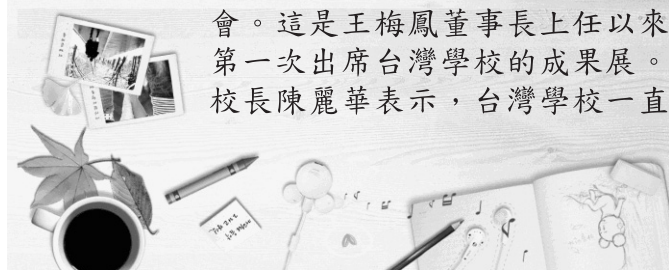 會。這是王梅鳳董事長上任以來
第一次出席台灣學校的成果展。
校長陳麗華表示，台灣學校一直